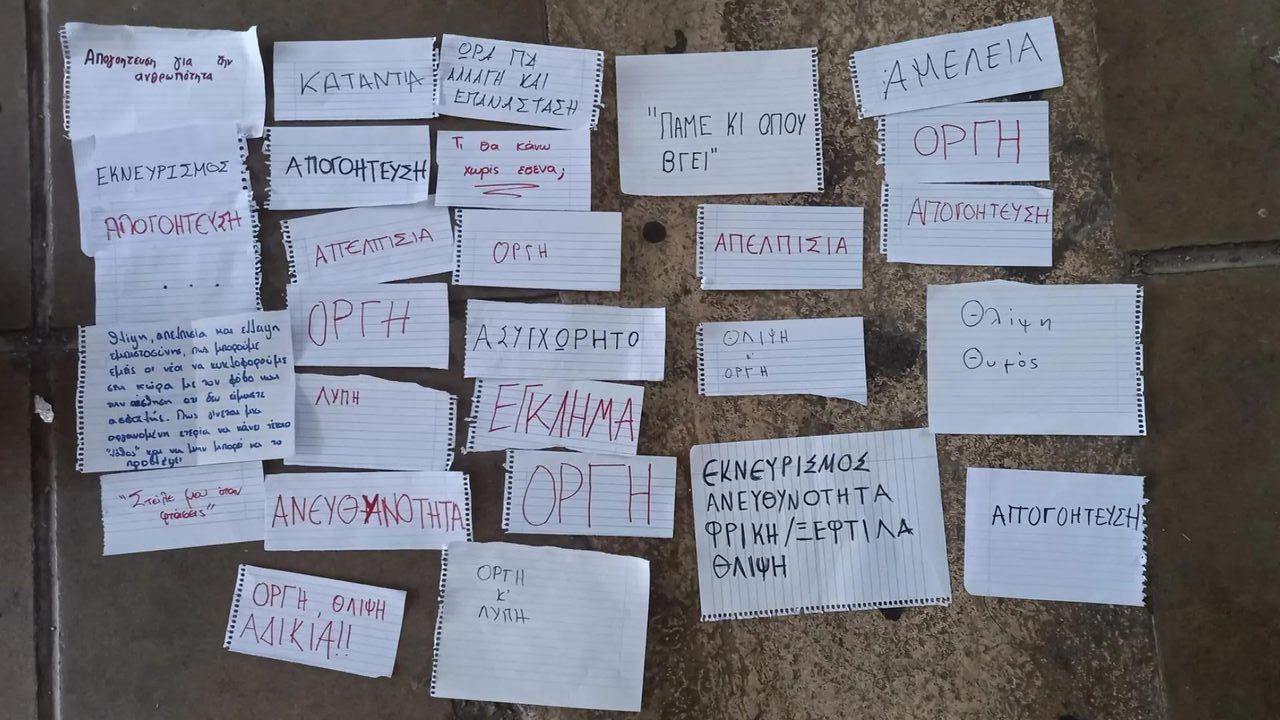 Απογοήτευση για την
ανθρωπότητα
ΕΚΝΕΥΡΙΣΜΟΣ
ΑΠΟΓΟΗΤΕΥΣΗ
. . . .
θλίψη, απελπισία και έλλειψη
εμπιστοσύνης, πως μπορούμε
εμείς οι νέοι να κυκλοφορούμε
στη χώρα με τον φόβο και
την αίσθηση ότι δεν είμαστε
ασφαλής. Πως γίνεται μια
οργανωμένη εταιρία να κάνει τέτοιο
"λάθος" και να μην μπορεί να το
προβλέψει
"Στείλε μου όταν
φτάσεις"
ΚΑΤΑΝΤΙΑ
ΑΠΟΓΟΗΤΕΥΣΗ
ΑΠΕΛΠΙΣΙΑ
ΟΡΓΗ
ΛΥΠΗ
ΑΝΕΥΘΥΝΟΤΗΤΑ
ΟΡΓΗ, ΘΛΙΨΗ
ΑΔΙΚΙΑ!!
ΩΡΑ ΓΙΑ
ΑΛΛΑΓΗ ΚΑΙ
ΕΠΑΝΑΣΤΑΣΗ
Τι θα κάνω
χωρίς εσενα;
ΟΡΓΗ
ΑΣΥΓΧΩΡΗΤΟ
ΕΓΚΛΗΜΑ
ΟΡΓΗ
ΟΡΓΗ
Κ'
ΛΥΠΗ
"ΠΑΜΕ ΚΙ ΟΠΟΥ
ΒΓΕΙ"
ΑΠΕΛΠΙΣΙΑ
ΘΛΙΨΗ
κ'
ΟΡΓΗ
ΕΚΝΕΥΡΙΣΜΟΣ
ΑΝΕΥΘΥΝΟΤΗΤΑ
ΦΡΙΚΗ/ΞΕΦΤΙΛΑ
ΘΛΙΨΗ
ΑΜΕΛΕΙΑ
ΟΡΓΗ
ΑΠΟΓΟΗΤΕΥΣΗ
Θλίψη
Θυμός
ΑΠΟΓΟΗΤΕΥΣΗ